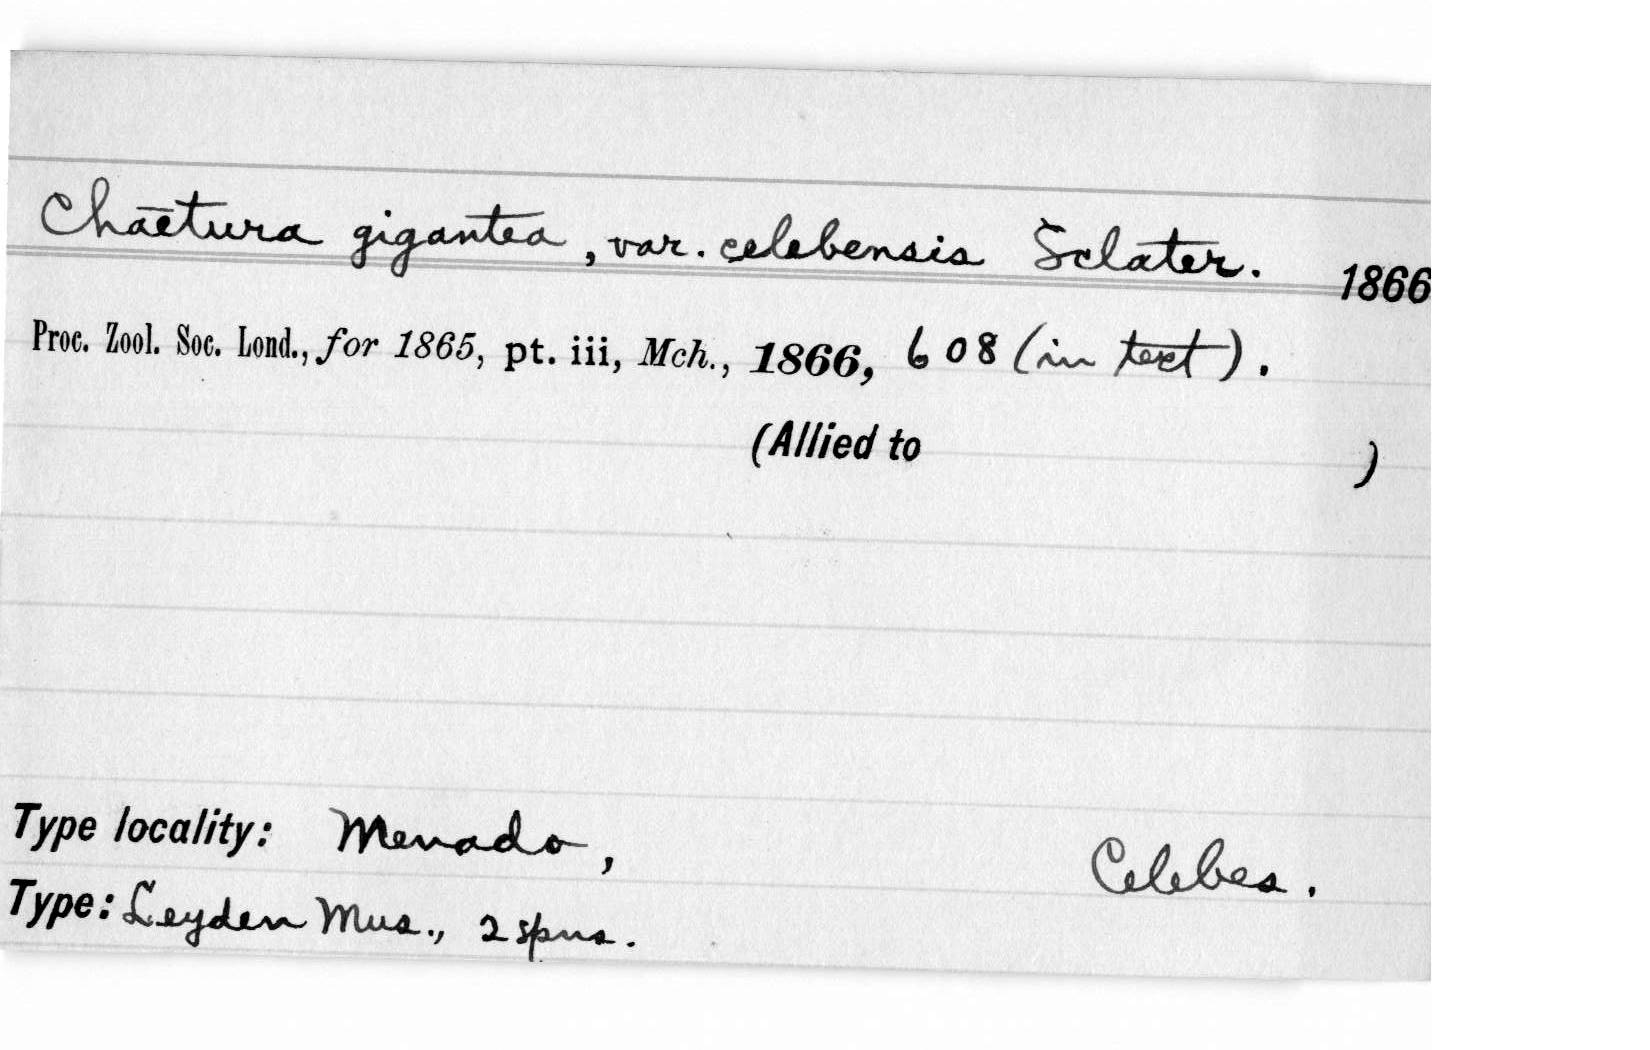 Chaetura gigantea, var. celebensis Sclater. 1866
Proc. Zool. Soc. Lond., for 1865, pt. iii, Mch., 1866, 608 (in text).
(Allied to )
Type locality: Menado, Celebes.
Type: Leyden Mus., 2 spns.